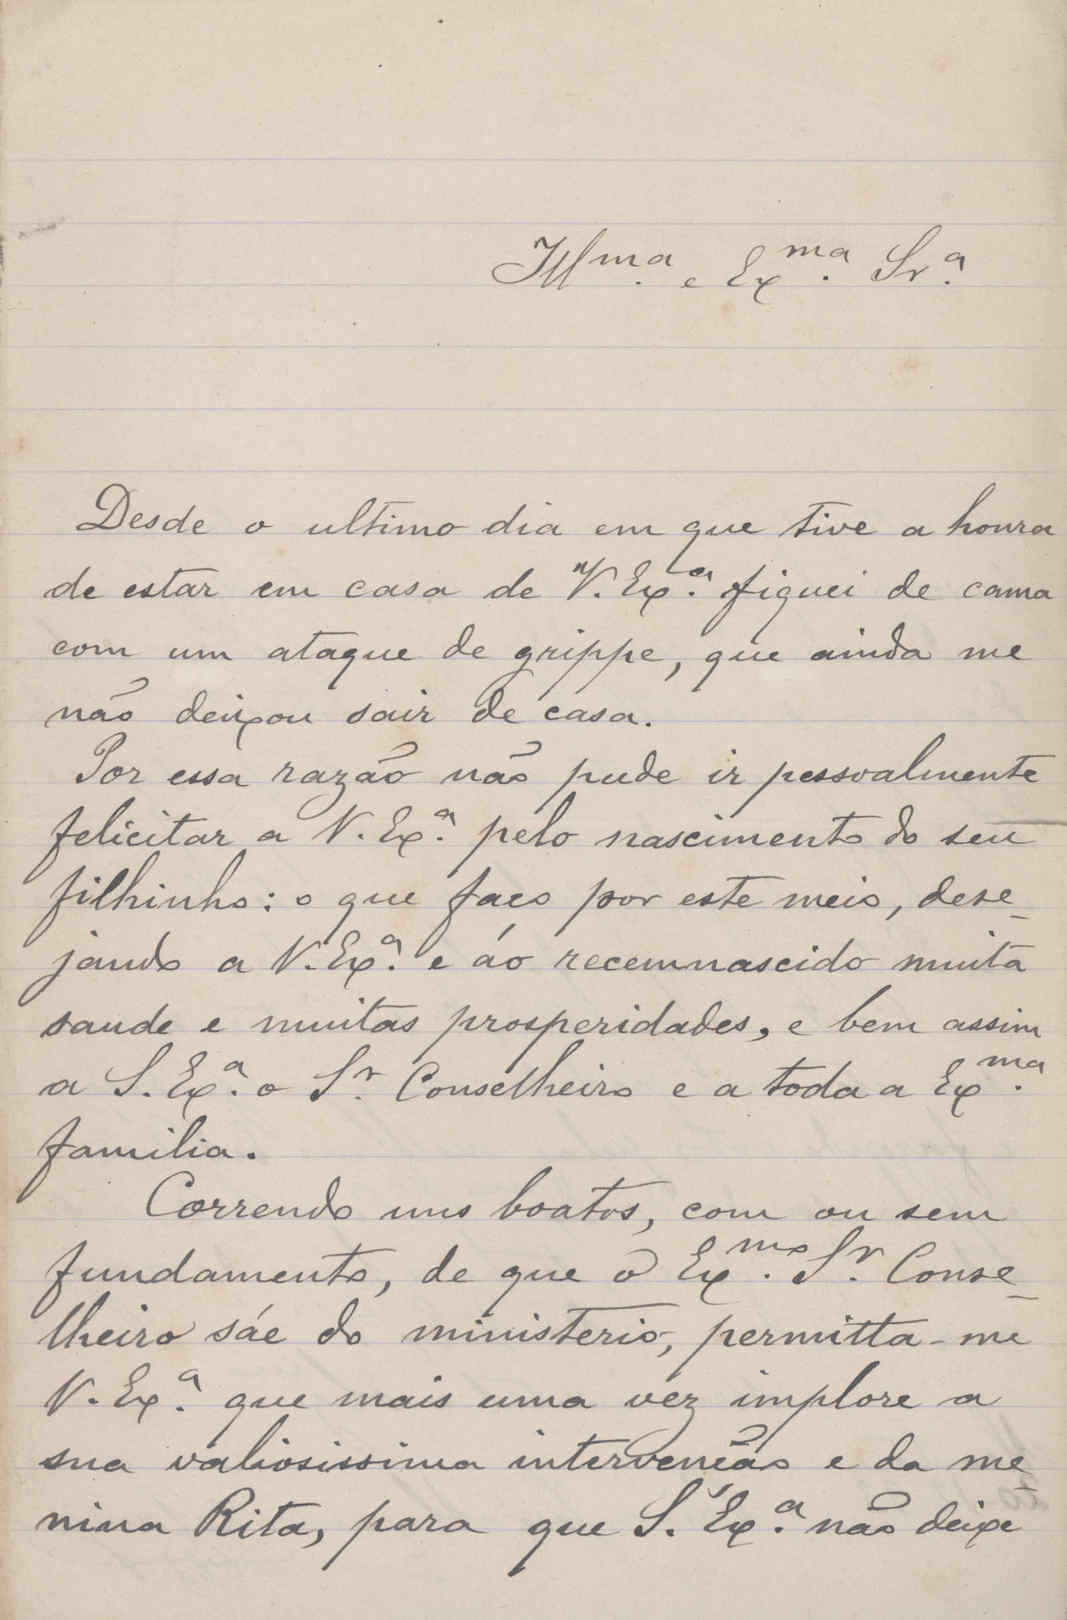 Illma. e Exma. Sra.
Desde o ultimo dia em que tive a honra
de estar em casa de V. Exa. fiquei de cama
com um ataque de grippe, que ainda me
não deixou sair de casa.
Por essa razão não pude ir pessoalmente
felicitar a V. Exa. pelo nascimento do seu
filhinho: o que faço por este meio, dese-
jando a V. Exa. e áo recemnascido muita
saude e muitas prosperidades, e bem assim
a S. Exa. o Sr. Conselheiro e a toda a Exma.
familia.
Correndo uns boatos, com ou sem
fundamento, de que o Exmo. Sr. Conse-
lheiro sáe do ministerio, permitta-me
V. Exa. que mais uma vez implore a
sua valiosissima intervenção e da me-
nina Rita, para que S. Exa. não deixe